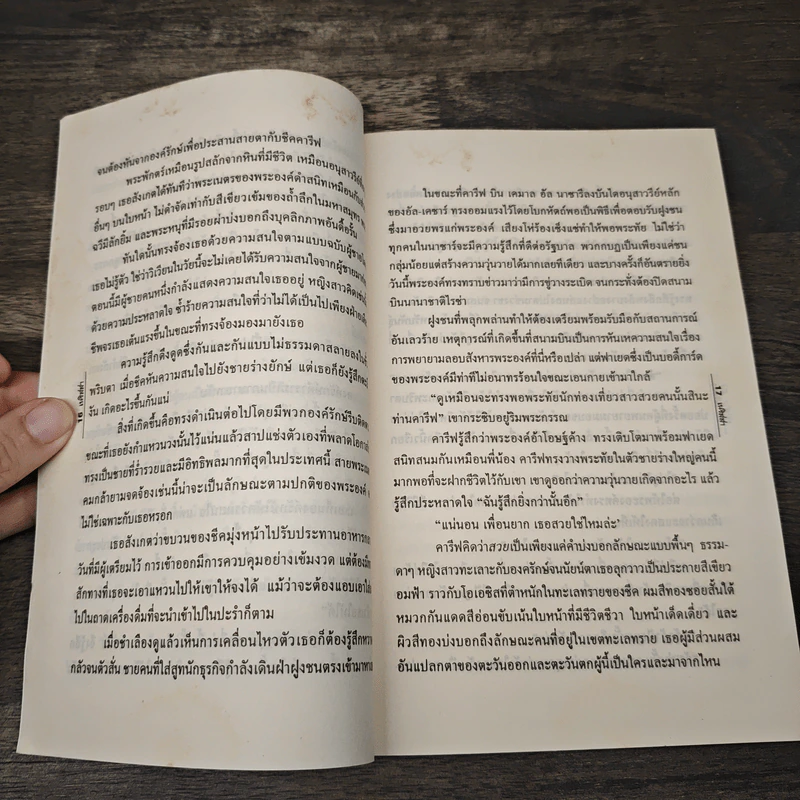 จนต้องหันจากองค์รักษ์เพื่อประสานสายตากับชีคคารีฟ
พระพักตร์เหมือนรูปสลักจากหินที่มีชีวิต เหมือนอนุสาวรีย์
รอบๆ เธอสังเกตได้ทันทีว่าพระเนตรของพระองค์ดำสนิทเหมือนกับ
อื่นๆ บนใบหน้า ไม่ดำจัดเท่ากับสีเขียวเข้มของถ้ำลึกในมหาสมุทร
ฉวีมีลักยิ้ม และพระหนุที่มีรอยผ่าบ่งบอกถึงบุคลิกภาพอันดื้อรั้น
ทันใดนั้นทรงจ้องเธอด้วยความสนใจตามแบบฉบับผู้ชาย
เธอไม่รู้ตัว ใช่ว่าวิเวียนในวัยนี้จะไม่เคยได้รับความสนใจจากผู้ชายมา
ตอนนี้มีผู้ชายคนหนึ่งกำลังแสดงความสนใจเธออยู่ หญิงสาวคิดเช่น
ด้วยความประหลาดใจ ซ้ำร้ายความสนใจที่ว่าไม่ได้เป็นไปเพียงฝ่าย
ชีพจรเธอเต้นแรงขึ้นในขณะที่ทรงจ้องมองมายังเธอ
ความรู้สึกดึงดูดซึ่งกันและกันแบบไม่ธรรมดาสลายลงใน
พริบตา เมื่อชีคหันความสนใจไปยังชายร่างยักษ์ แต่เธอก็ยังรู้สึก
งัน เกิดอะไรขึ้นกันแน่
สิ่งที่เกิดขึ้นคือทรงดำเนินต่อไปโดยมีพวกองค์รักษ์รีบติด
ขณะที่เธอยังกำแหวนวงนั้นไว้แน่นแล้วสาปแช่งตัวเองที่พลาดโอกาส
ทรงเป็นชายที่ร่ำรวยและมีอิทธิพลมากที่สุดในประเทศนี้ สายพระ
คมกล้ายามจดจ้องเช่นนี้น่าจะเป็นลักษณะตามปกติของพระองค์
ไม่ใช่เฉพาะกับเธอหรอก
เธอสังเกตว่าขบวนของชีคมุ่งหน้าไปรับประทานอาหาร
วันที่มีผู้เตรียมไว้ การเข้าออกมีการควบคุมอย่างเข้มงวด แต่ต้อง
สักทางที่เธอจะเอาแหวนไปให้เขาให้จงได้ แม้ว่าจะต้องแอบเอา
ไปในถาดเครื่องดื่มที่จะนำเข้าไปในปะรำก็ตาม
เมื่อชำเลืองดูแล้วเห็นการเคลื่อนไหวตัวเธอก็ต้องรู้สึก
กลัวจนตัวสั่น ชายคนที่ใส่สูทนักธุรกิจกำลังเดินฝ่าฝูงชนตรงเข้ามา
16 เบสิฟล่า
ในขณะที่คารีฟ บิน เคมาล อัล นาซารีลงบันไดอนุสาวรีย์หลัก
ของอัล-เคซาร์ ทรงออมแรงไว้โดยโบกหัตถ์พอเป็นพิธีเพื่อตอบรับฝูงชน
ซึ่งมาอวยพรแก่พระองค์ เสียงโห่ร้องเซ็งแซ่ทำให้พอพระทัย ไม่ใช่ว่า
ทุกคนในนาซาร์จะมีความรู้สึกที่ดีต่อรัฐบาล พวกกบฏเป็นเพียงแค่ชน
กลุ่มน้อยแต่สร้างความวุ่นวายได้มากเลยทีเดียว และบางครั้งก็อันตรายยิ่ง
วันนี้พระองค์ทรงทราบข่าวมาว่ามีการขู่วางระเบิด จนกระทั่งต้องปิดสนาม
บินนานาชาติไรซ่า
ฝูงชนที่พลุกพล่านทำให้ต้องเตรียมพร้อมรับมือกับสถานการณ์
อันเลวร้าย เหตุการณ์ที่เกิดขึ้นที่สนามบินเป็นการหันเหความสนใจเรื่อง
การพยายามลอบสังหารพระองค์ที่นี่หรือเปล่า แต่ฟาเยดซึ่งเป็นบอดี้การ์ด
ของพระองค์มีท่าทีไม่อนาทรร้อนใจขณะเอนกายเข้ามาใกล้
"ดูเหมือนจะทรงพอพระทัยนักท่องเที่ยวสาวสวยคนนั้นสินะ
ท่านคารีฟ" เขากระซิบอยู่ริมพระกรรณ
คารีฟรู้สึกว่าพระองค์อ้าโอษฐ์ค้าง ทรงเติบโตมาพร้อมฟาเยด
สนิทสนมกันเหมือนพี่น้อง คารีฟทรงวางพระทัยในตัวชายร่างใหญ่คนนี้
มากพอที่จะฝากชีวิตไว้กับเขา เขาดูออกว่าความวุ่นวายเกิดจากอะไร แล้ว
รู้สึกประหลาดใจ "ฉันรู้สึกยิ่งกว่านั้นอีก"
"แน่นอน เพื่อนยาก เธอสวยใช่ไหมล่ะ'
คารีฟคิดว่าสวยเป็นเพียงแค่คำบ่งบอกลักษณะแบบพื้นๆ ธรรม-
ดาๆ หญิงสาวทะเลาะกับองครักษ์จนนัยน์ตาเธอลุกวาวเป็นประกายสีเขียว
อมฟ้า ราวกับโอเอซิสที่ตำหนักในทะเลทรายของชีค ผมสีทองซอยสั้นใต้
หมวกกันแดดสีอ่อนขับเน้นใบหน้าที่มีชีวิตชีวา ใบหน้าเด็ดเดี่ยว และ
ผิวสีทองบ่งบอกถึงลักษณะคนที่อยู่ในเขตทะเลทราย เธอผู้มีส่วนผสม
อันแปลกตาของตะวันออกและตะวันตกผู้นี้เป็นใครและมาจากไหน
17